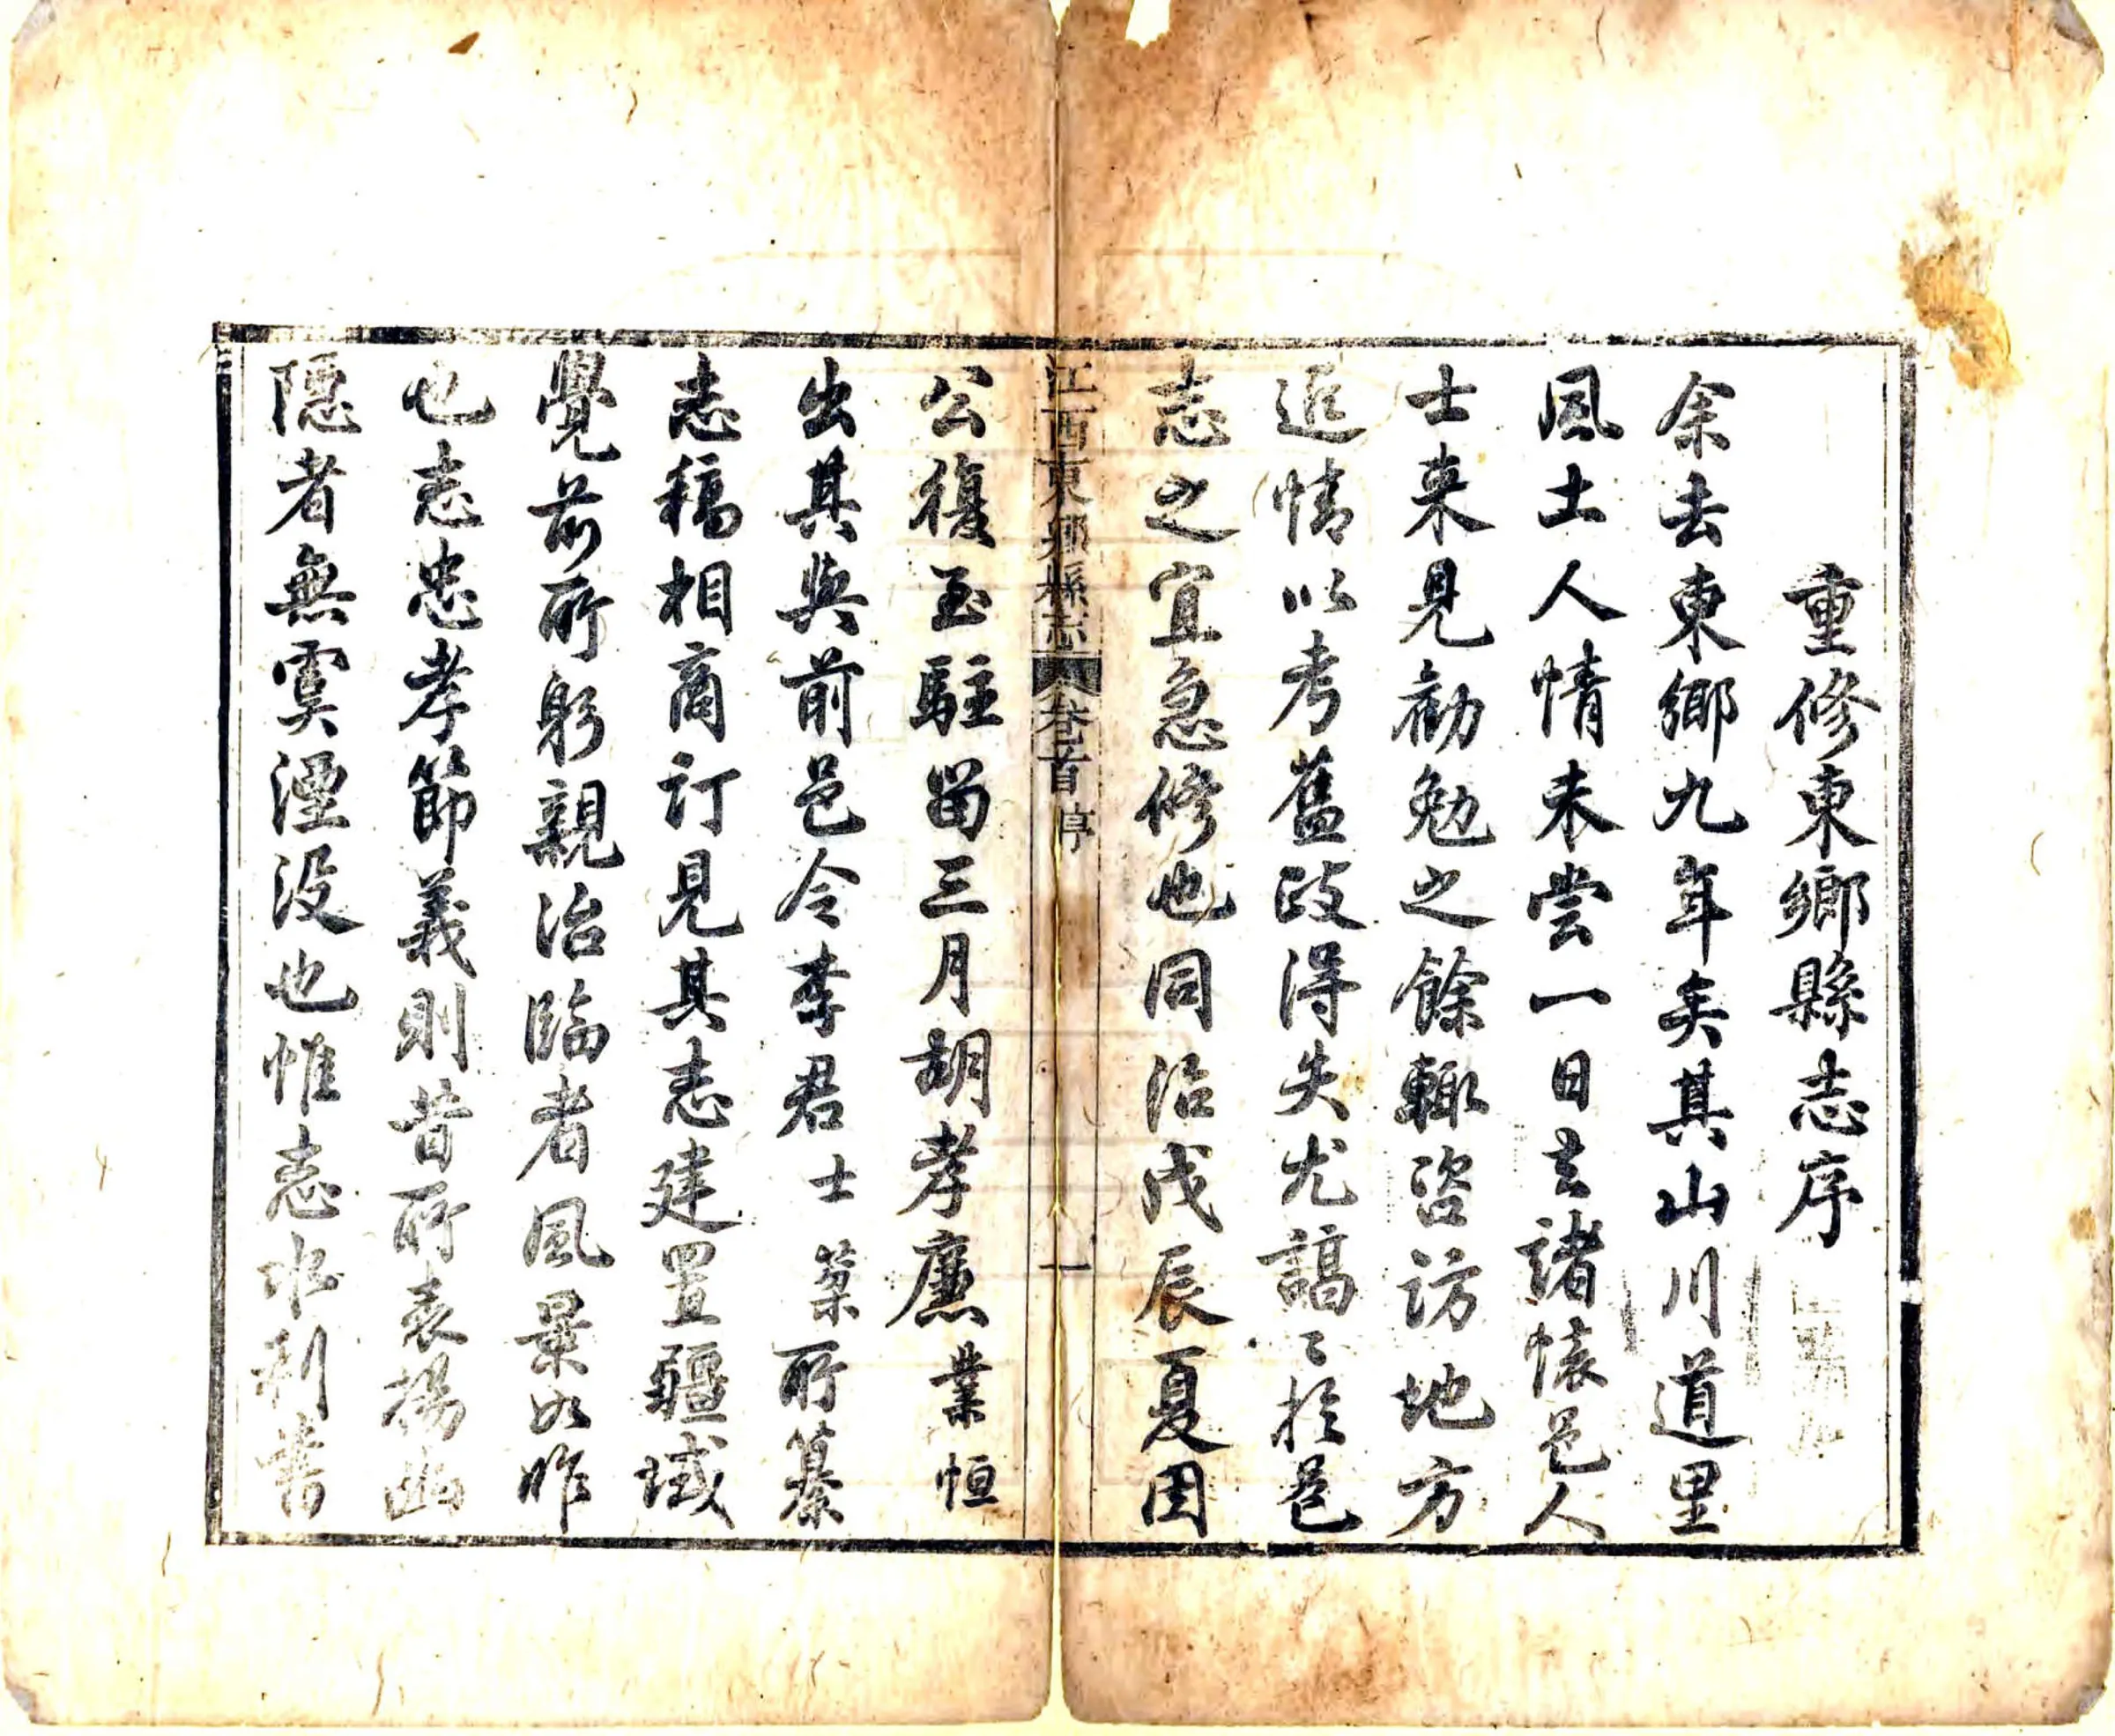 重修東鄉縣志序
余去東鄉九年矣其山川道里
風土人情未嘗一日去諸懷邑人
士来見勸勉之餘輒咨訪地方
近情以考舊政得失尤諄〻於邑
志之宜急修也同治戊辰夏因
江西東鄉縣志 卷首 序 一
公復至駐留三月胡孝廉業恒
出其與前邑令李君士棻所纂
志稿相商訂見其志建置疆域
覺前所躬親治臨者風景如昨
也志忠孝節義則昔所表揚幽
隱者無虞湮没也惟志水利書